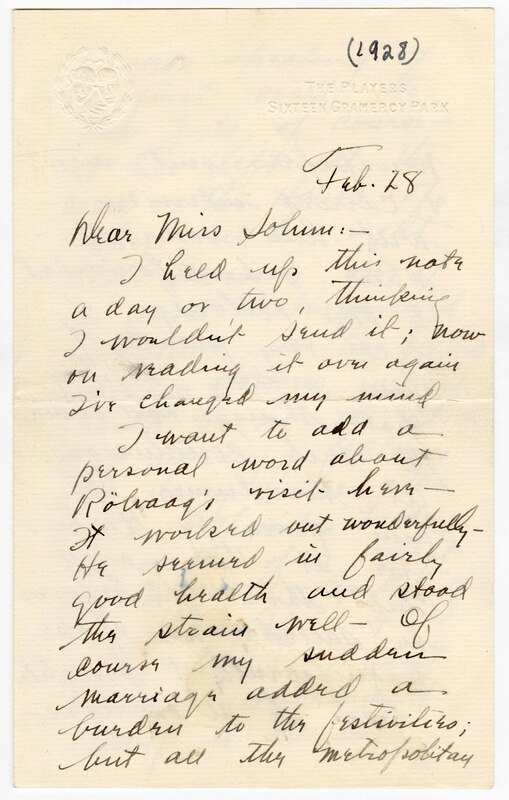 (1928)
THE PLAYERS
SIXTEEN GRAMERCY PARK
Feb. 28
Dear Miss Solum:—
I held up this note
a day or two, thinking
I wouldn't send it; now
on reading it over again
I've changed my mind—
I want to add a
personal word about
Rölvaag's visit here—
It worked out wonderfully—
He seemed in fairly
good health and stood
the strain well— Of
course my sudden
marriage added a
burden to the festivities;
but all the metropolitan